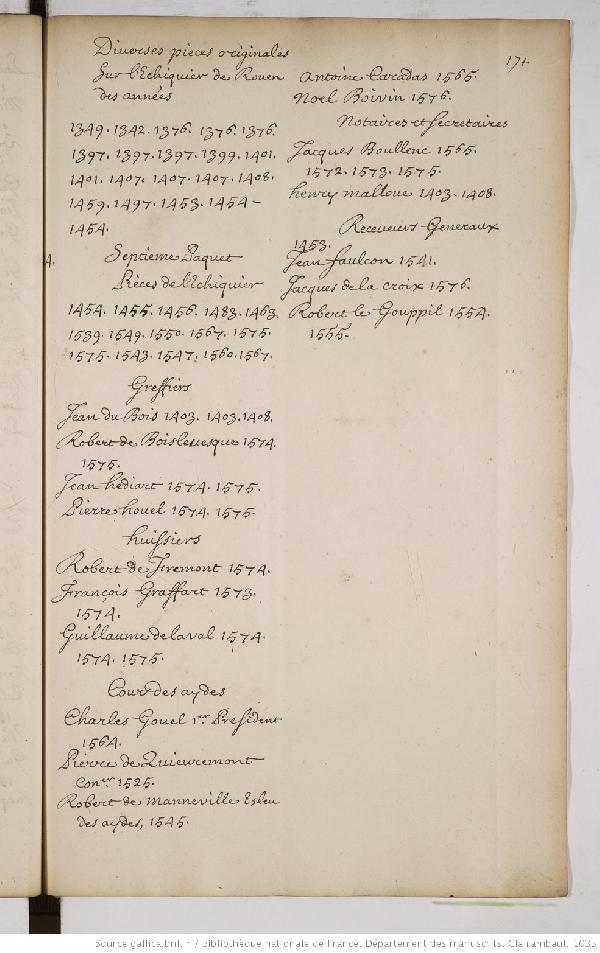 Diverses pieces originales
Sur l'Echiquier de Rouen
des années
1349. 1342. 1376. 1376. 1376.
1397. 1397. 1397. 1399. 1401.
1401. 1407. 1407. 1407. 1408.
1459. 1497. 1453. 1454 -
1454.
Septieme Paquet
Pièces de l'Echiquier
1454. 1455. 1456. 1483. 1463.
1539. 1549. 1550. 1567. 1575.
1575. 1543. 1547. 1560. 1567.
Greffiers
Jean du Bois 1403. 1403. 1408.
Robert de Boisleuesque 1574.
1575.
Jean hediart 1574. 1575.
Pierre houel 1574. 1575.
huissiers
Robert de Fremont 1574.
François Graffart 1573.
1574.
Guillaume delaval 1574.
1574. 1575.
Cour des aydes
Charles Gouel 1er President
1564.
Pierre de Quieuremont
Coner 1525.
Robert de Manneville Esleu
des aydes, 1545.
17+
Antoine Caradas 1565.
Noel Boivin 1576.
Notaires et Secretaires
Jacques Boullenc 1565.
1572. 1573. 1575.
henry maloue 1403. 1408.
Receveurs Generaux
1453.
Jean faulcon 1541.
Jacques de la croix 1576.
Robert le Gouppil 1554.
1555.
4.
Source gallica.bnf.fr / Bibliothèque nationale de France. Département des manuscrits. Clairambault 1035